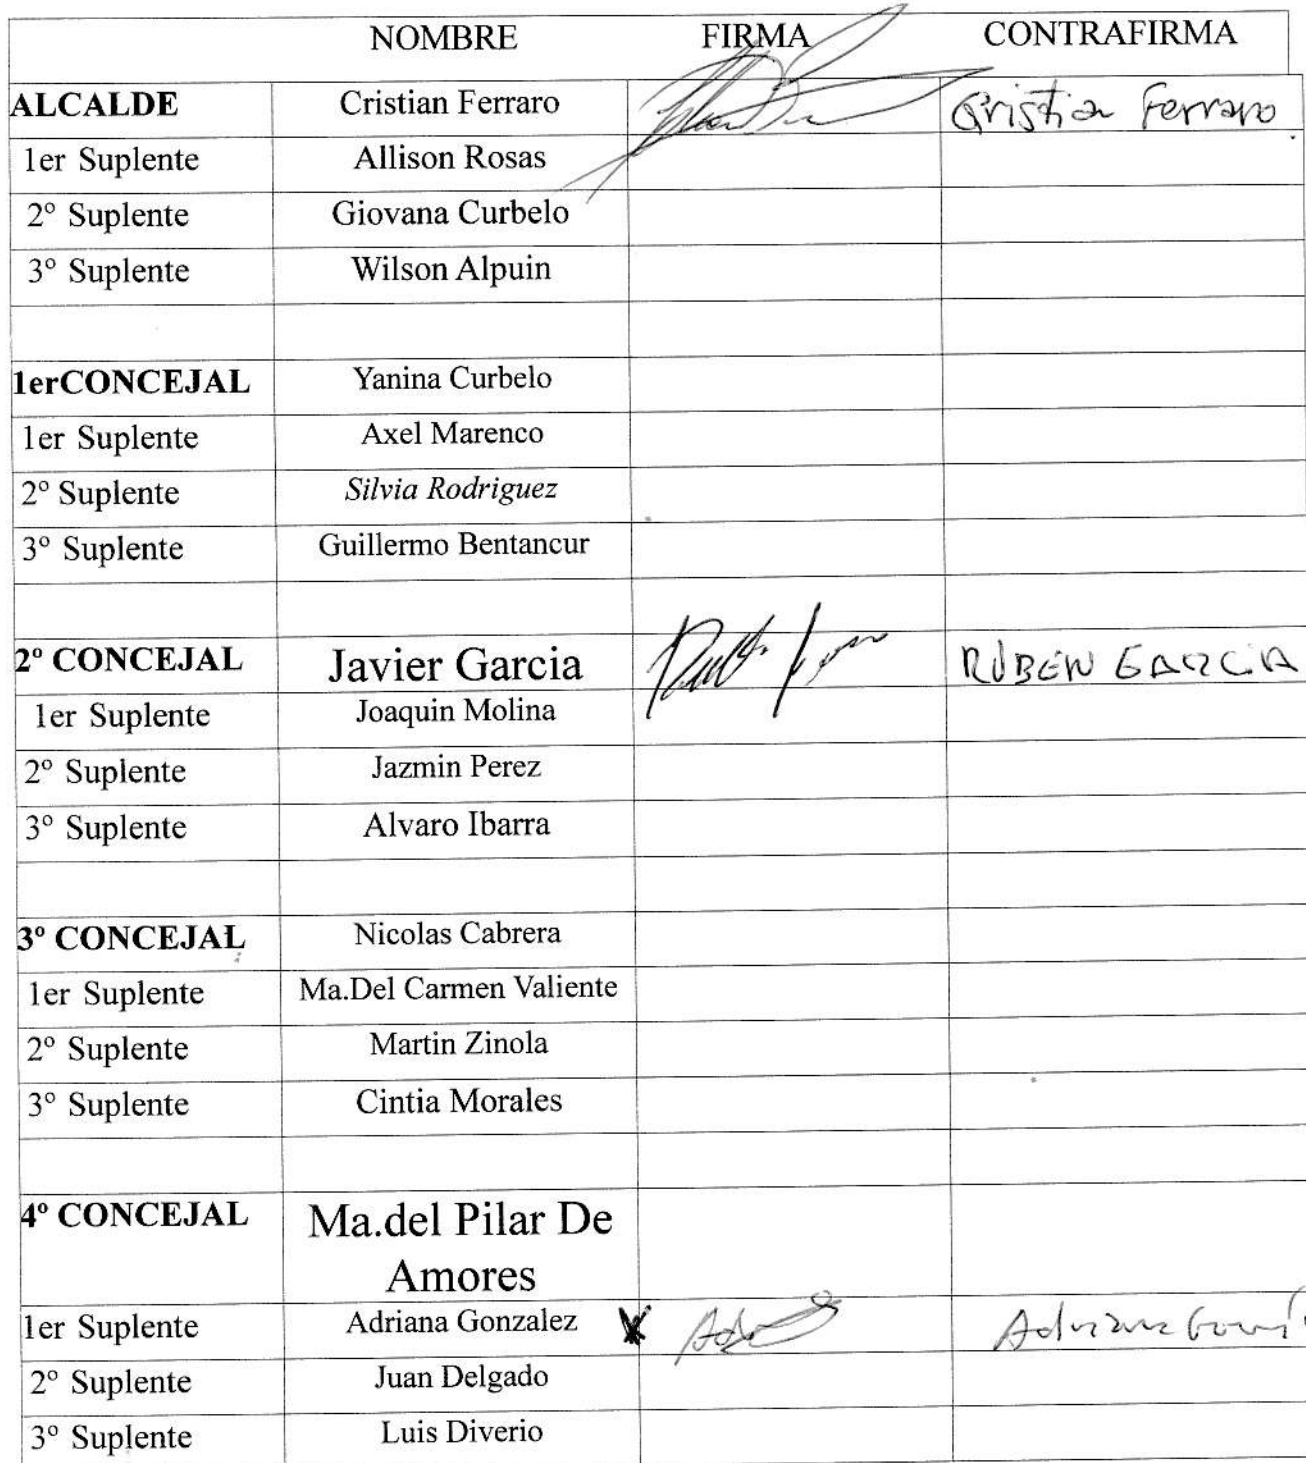 NOMBRE FIRMA CONTRAFIRMA
ALCALDE Cristian Ferraro Cristian Ferraro
1er Suplente Allison Rosas
2º Suplente Giovana Curbelo
3º Suplente Wilson Alpuin
1erCONCEJAL Yanina Curbelo
1er Suplente Axel Marenco
2º Suplente Silvia Rodriguez
3º Suplente Guillermo Bentancur
2º CONCEJAL Javier Garcia RUBEN GARCIA
1er Suplente Joaquin Molina
2º Suplente Jazmin Perez
3º Suplente Alvaro Ibarra
3º CONCEJAL Nicolas Cabrera
1er Suplente Ma.Del Carmen Valiente
2º Suplente Martin Zinola
3º Suplente Cintia Morales
4º CONCEJAL Ma.del Pilar De
Amores
1er Suplente Adriana Gonzalez Adriana
2º Suplente Juan Delgado
3º Suplente Luis Diverio